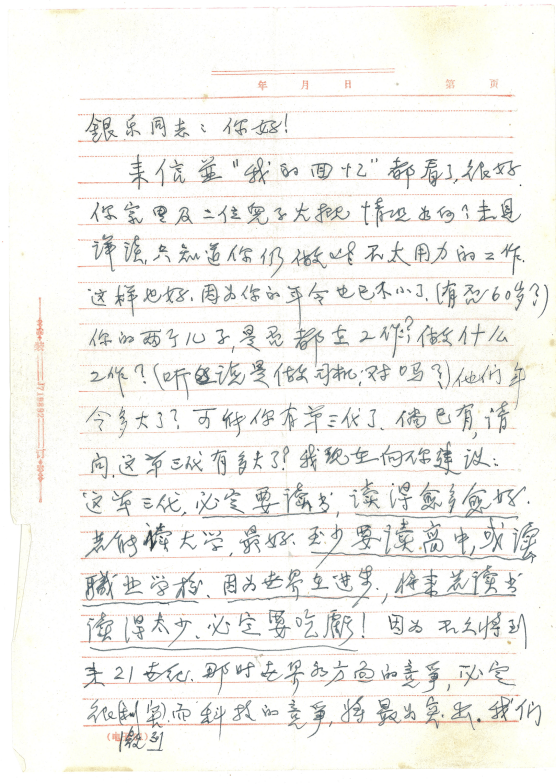 年 月 日 第 页
銀乐同志：你好！
来信並“我的回忆”都看了，很好.
你家里及二位儿子大概情况如何？未見
详谈，只知道你仍做些不太用力的工作.
这样也好.因为你的年令也已不小了.(有否60岁？)
你的两个儿子，是否都在工作？做什么
工作？(听说是做司机，对吗？)他们年
令多大了？可能你有第三代了.倘已有，请
问，这第三代有多大了？我现在向你建议：
这第三代，必定要读书，读得愈多愈好.
若能读大学，最好.至少要读高中，或读
職业学校.因为世界在进步，将来若读书
读得太少.必定要吃虧！因为不久将到
来21世纪.那时世界各方面的竞爭，必定
很激烈.而科技的竞爭，将最为突出.我们